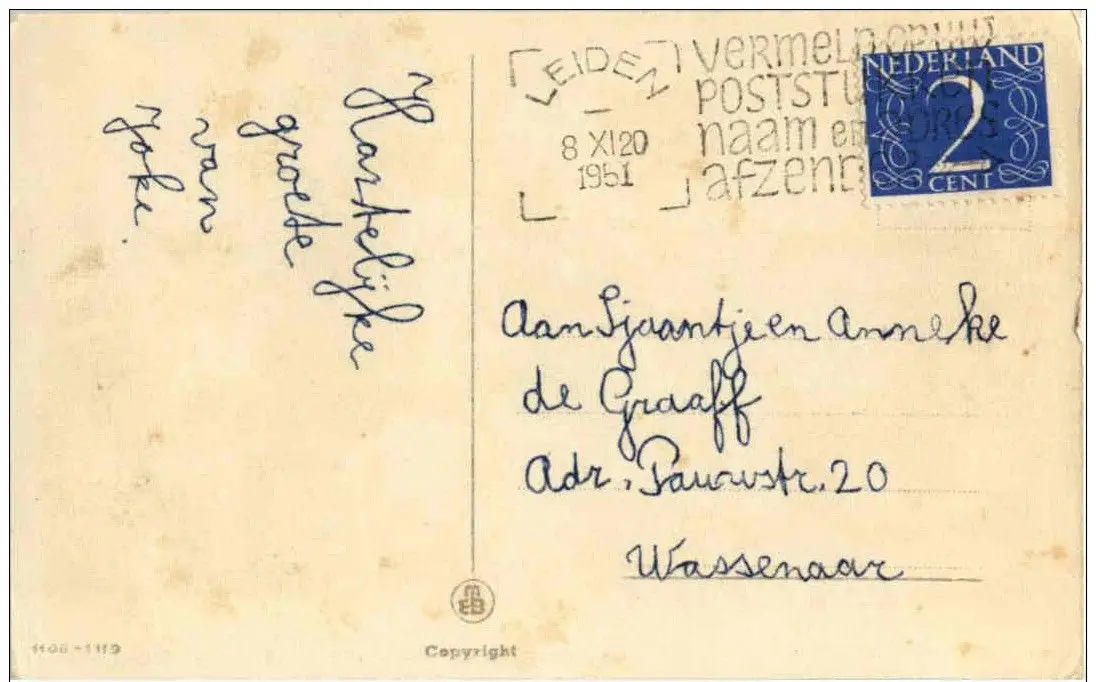 Hartelijke
groete
van
Joke.
LEIDEN
8 XI 20
1951
VERMELD OP UW
POSTSTUKKEN
naam en ADRES
afzender
NEDERLAND
2
CENT
Aan Sjaantje en Anneke
de Graaff
Adr. Pauwstr. 20
Wassenaar
1108 - 1119
Copyright